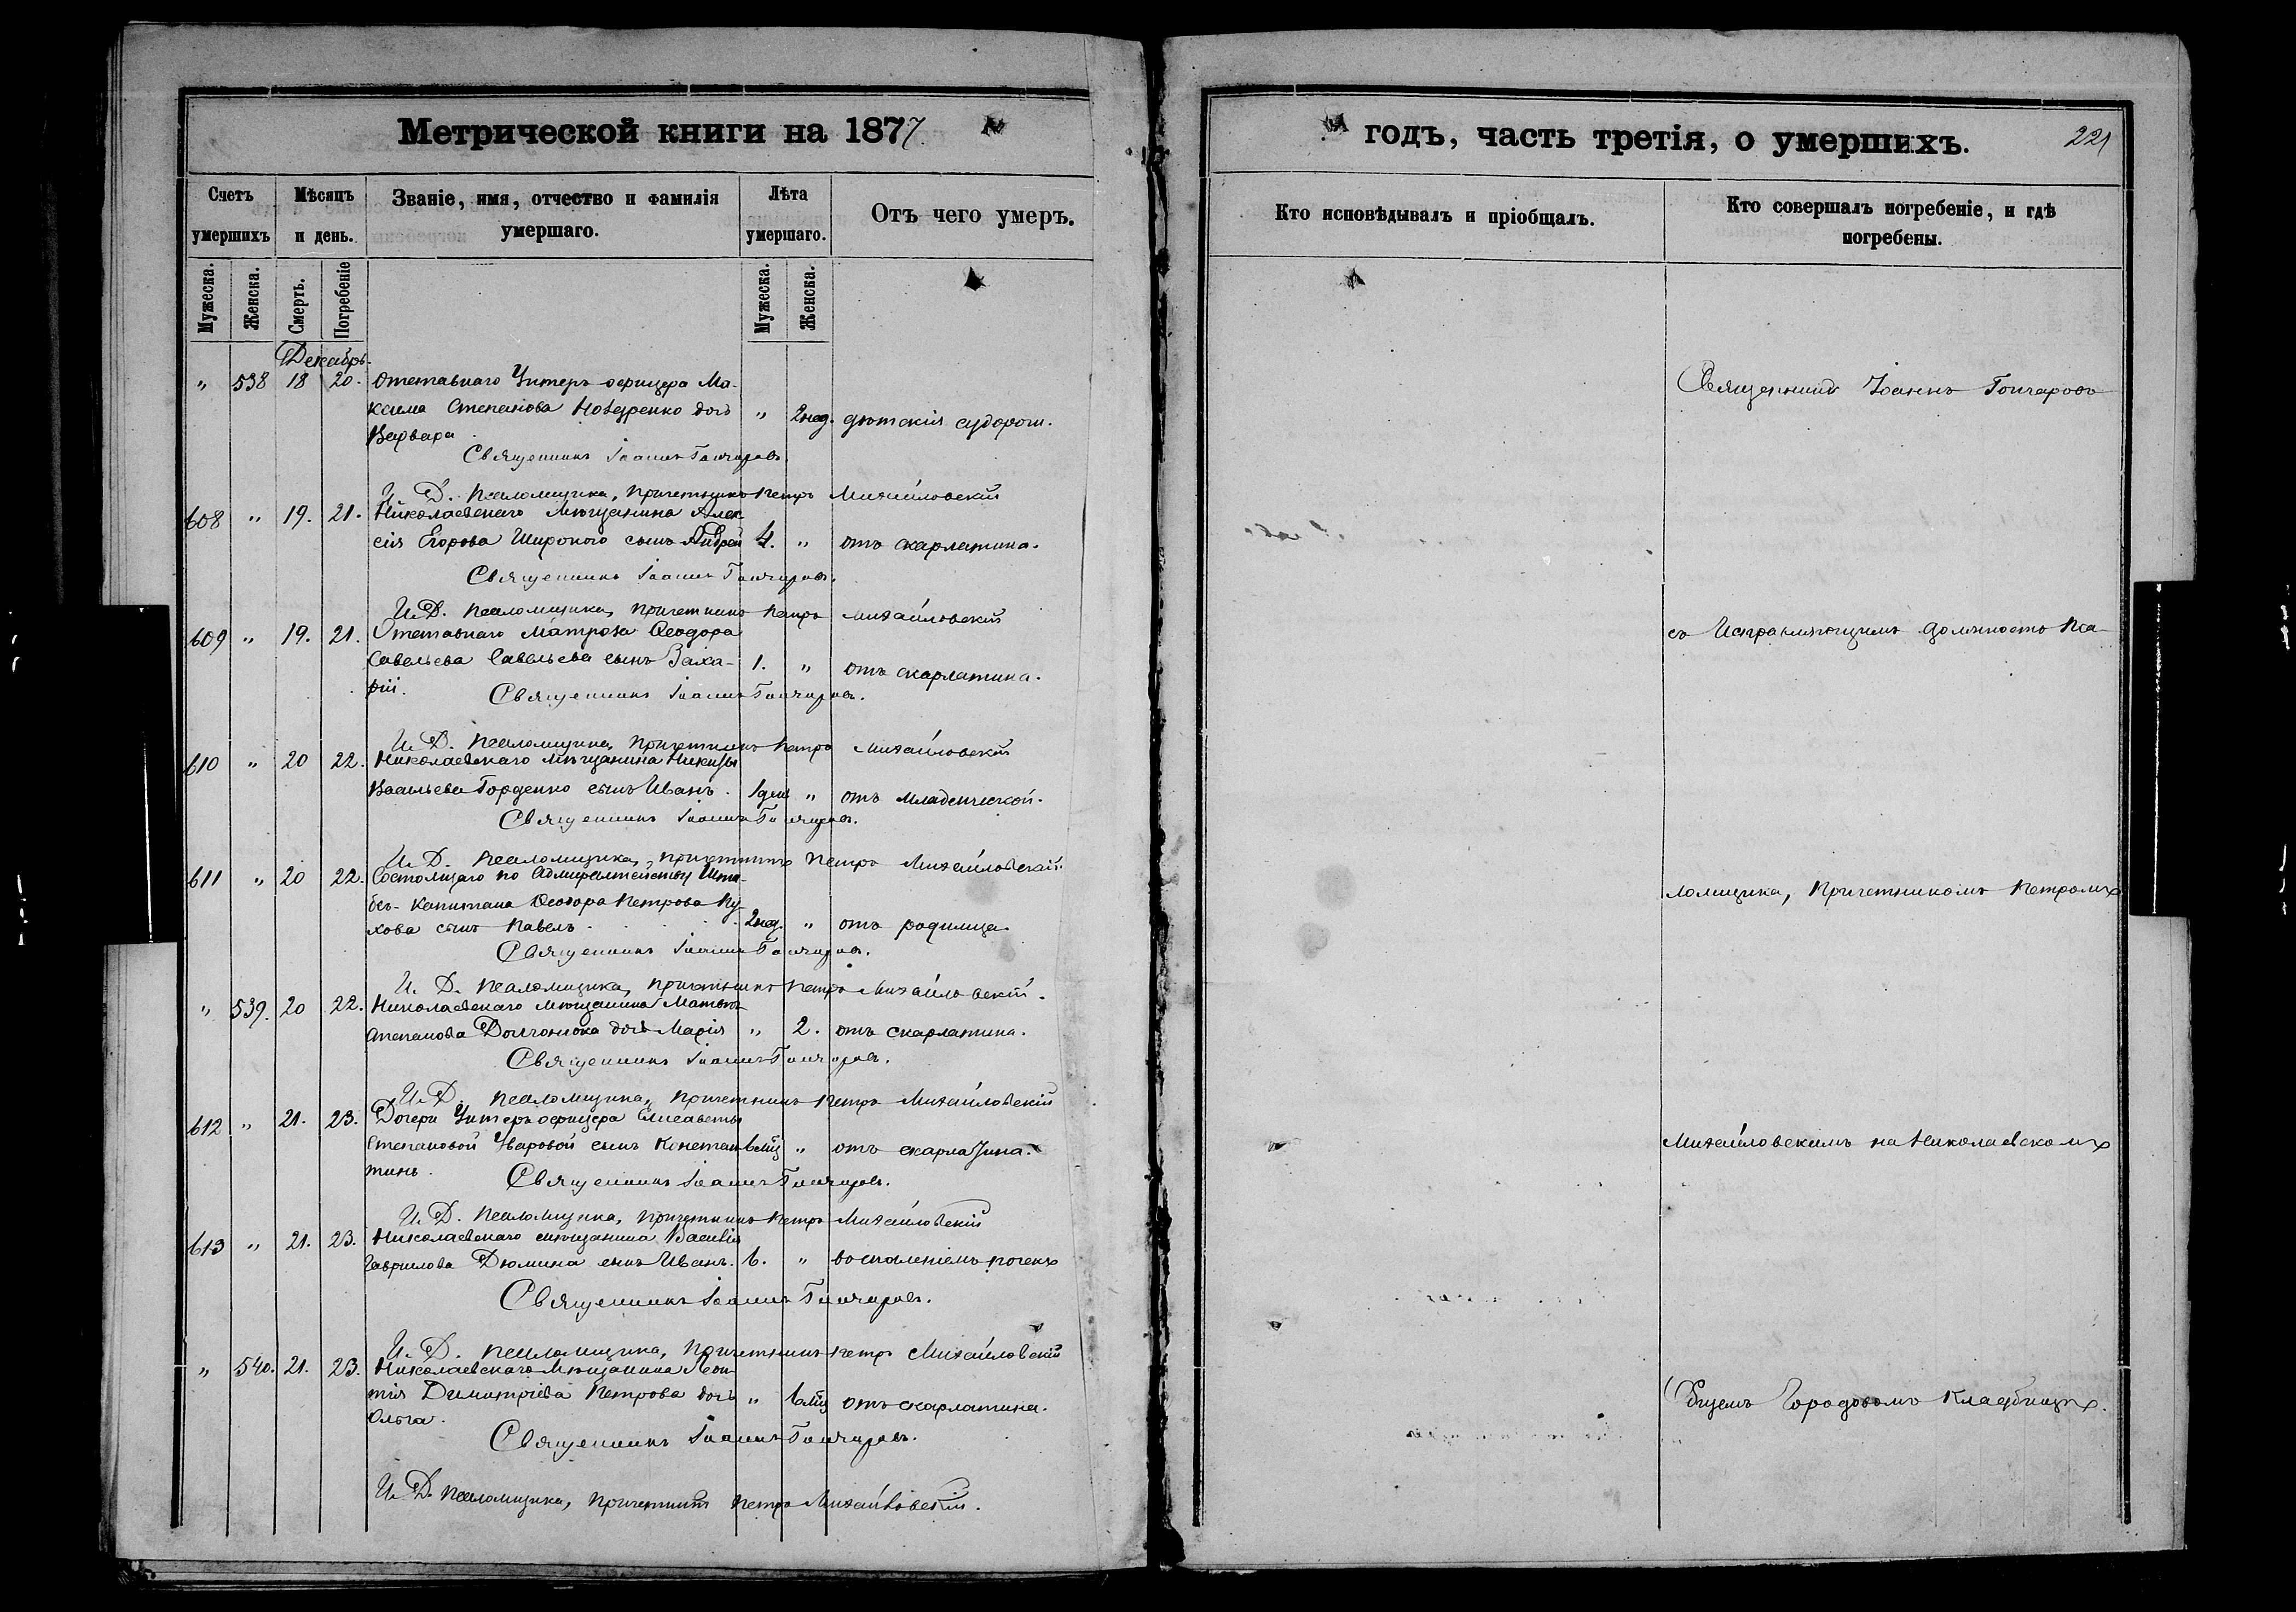 Метрической книги на 1877
годъ, часть третія, о умершихъ.
221
Счетъ умершихъ
Мѣсяцъ и день.
Званіе, имя, отчество и фамилія умершаго.
Лѣта умершаго.
Отъ чего умеръ.
Кто исповѣдывалъ и пріобщалъ.
Кто совершалъ погребеніе, и гдѣ погребены.
Мужеска.
Женска.
Смерть.
Погребеніе
Мужеска.
Женска.
Декабрь.
" 538 18 20. Отставнаго Унтеръ офицера Ма-
ксима Степанова дочь " 2 нед. дѣтскія судорги.
Варвара
Священникъ Іоаннъ Гончаровъ.
И. Д. Псаломщика, Причетникъ Петръ Михайловскій
608 " 19. 21. Николаевскаго Мѣщанина Алек-
сія Егорова Широкого сынъ Андрей 4. " отъ скарлатина.
Священникъ Іоаннъ Гончаровъ.
И. Д. Псаломщика, Причетникъ Петръ Михайловскій
609 " 19. 21. Отставнаго Матроза Ѳеодора
Савельева Савельева сынъ Заха- 1. " отъ скарлатина.
рій.
Священникъ Іоаннъ Гончаровъ.
И. Д. Псаломщика, Причетникъ Петръ Михайловскій
610 " 20 22. Николаевскаго Мѣщанина Никиты
Васильева Горденко сынъ Иванъ. 1 день " отъ младенческой.
Священникъ Іоаннъ Гончаровъ.
И. Д. Псаломщика, Причетникъ Петръ Михайловскій
611 " 20 22. Состоящаго по Адмиралтейству Шта-
бсъ-Капитана Ѳеодора Петрова Пу-
хова сынъ Павелъ 2 нед. " отъ родимца.
Священникъ Іоаннъ Гончаровъ.
И. Д. Псаломщика, Причетникъ Петръ Михайловскій.
" 539. 20 22. Николаевскаго Мѣщанина
Степанова дочь Марія " 2. отъ скарлатина.
Священникъ Іоаннъ Гончаровъ.
И. Д. Псаломщика, Причетникъ Петръ Михайловскій
612 " 21. 23. Дочери Унтеръ офицера Елисаветы
Степановой Уваровой сынъ Констан- 6 мѣц " отъ скарлатина.
тинъ.
Священникъ Іоаннъ Гончаровъ.
И. Д. Псаломщика, Причетникъ Петръ Михайловскій
613 " 21. 23. Николаевскаго мѣщанина Василія
Гаврилова Дюмина сынъ Иванъ. 6. " воспаленіемъ почекъ
Священникъ Іоаннъ Гончаровъ.
И. Д. Псаломщика, Причетникъ Петръ Михайловскій
" 540. 21. 23. Николаевскаго Мѣщанина Леон-
тія Димитріева Петрова дочь " 6 мѣц отъ скарлатина.
Ольга.
Священникъ Іоаннъ Гончаровъ.
И. Д. Псаломщика, Причетникъ Петръ Михайловскій.
Священникъ Іоаннъ Гончаровъ
съ Исправляющимъ должность Пса-
ломщика, Причетникомъ Петромъ
Михайловскимъ на Николаевскомъ
Общемъ Городовомъ Кладбищѣ.